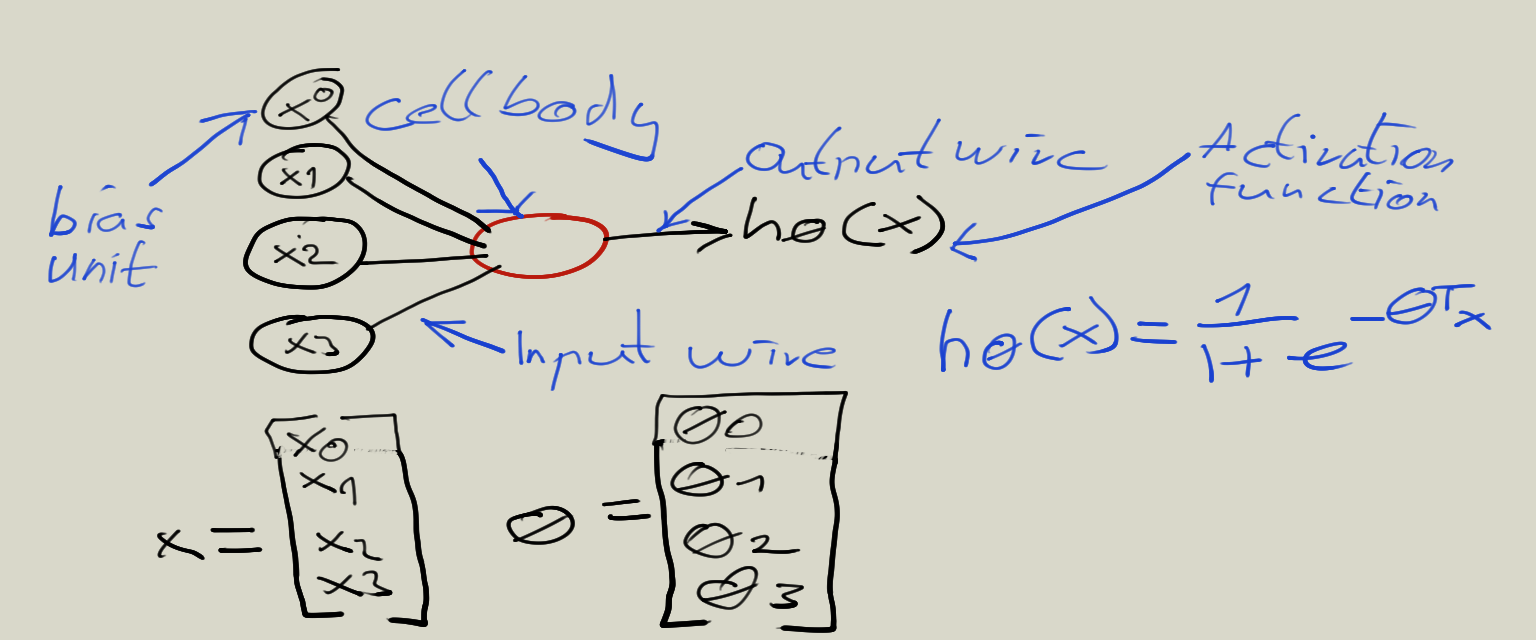 x0 cell body
x1
x2
x3
bias
unit
output wire
hθ(x)
Activation
function
Input wire
hθ(x) = 1 / 1 + e -θTx
x = x0
x1
x2
x3
θ = θ0
θ1
θ2
θ3